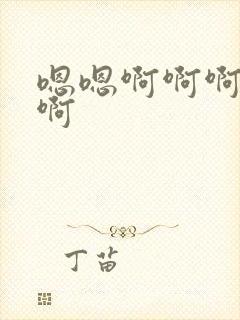 嗯嗯啊啊啊
啊
丁苗